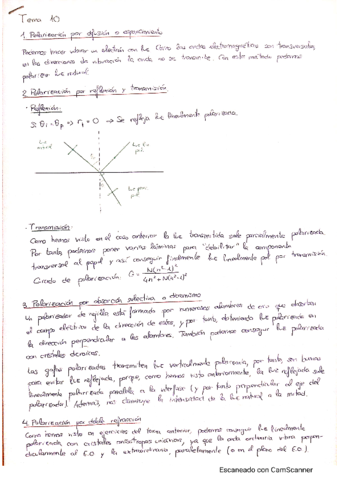 Tema 10
1. Polarización por difusión o esparcimiento
Podemos hacer vibrar un electrón con luz. Como las ondas electromagnéticas son transversales,
en las direcciones de vibración la onda no se transmite. Con este método podemos
polarizar luz natural.
2. Polarización por reflexión y transmisión
· Reflexión:
Si θi = θp → r∥ = 0 → Se refleja luz linealmente polarizada.
Luz
natural
Luz
pol.
Luz par.
pol.
· Transmisión:
Como hemos visto en el caso anterior la luz transmitida sale parcialmente polarizada.
Por tanto, podemos poner varias láminas para "debilitar" la componente
transversal al papel y así conseguir finalmente luz linealmente pol. por transmisión
Grado de polarización: G = N(n²-1)² / 4n²+N(n²-1)²
3. Polarización por absorción selectiva o dicroísmo
Un polarizador de rejilla está formado por numerosos alambres de que absorben
el campo eléctrico en la dirección de estos, y por tanto, obtenemos luz polarizada en
la dirección perpendicular a los alambres. También podemos conseguir luz polarizada
con cristales dicroicos.
Las gafas polarizadas transmiten luz verticalmente polarizada, por tanto, son buenas
para evitar luz reflejada, porque, como hemos visto anteriormente, la luz reflejada sale
linealmente polarizada paralela a la interfase (y por tanto perpendicular al eje del
polarizador). Además, nos disminuye la intensidad de la luz natural a la mitad.
4. Polarización por doble refracción
Como hemos visto en ejercicios del tema anterior, podemos conseguir luz linealmente
polarizada, con cristales anisótropos uniáxicos, ya que la onda ordinaria vibra perpen-
dicularmente al E.O. y la extraordinaria, paralelamente (o en el plano del E.O.)
Escaneado con CamScanner